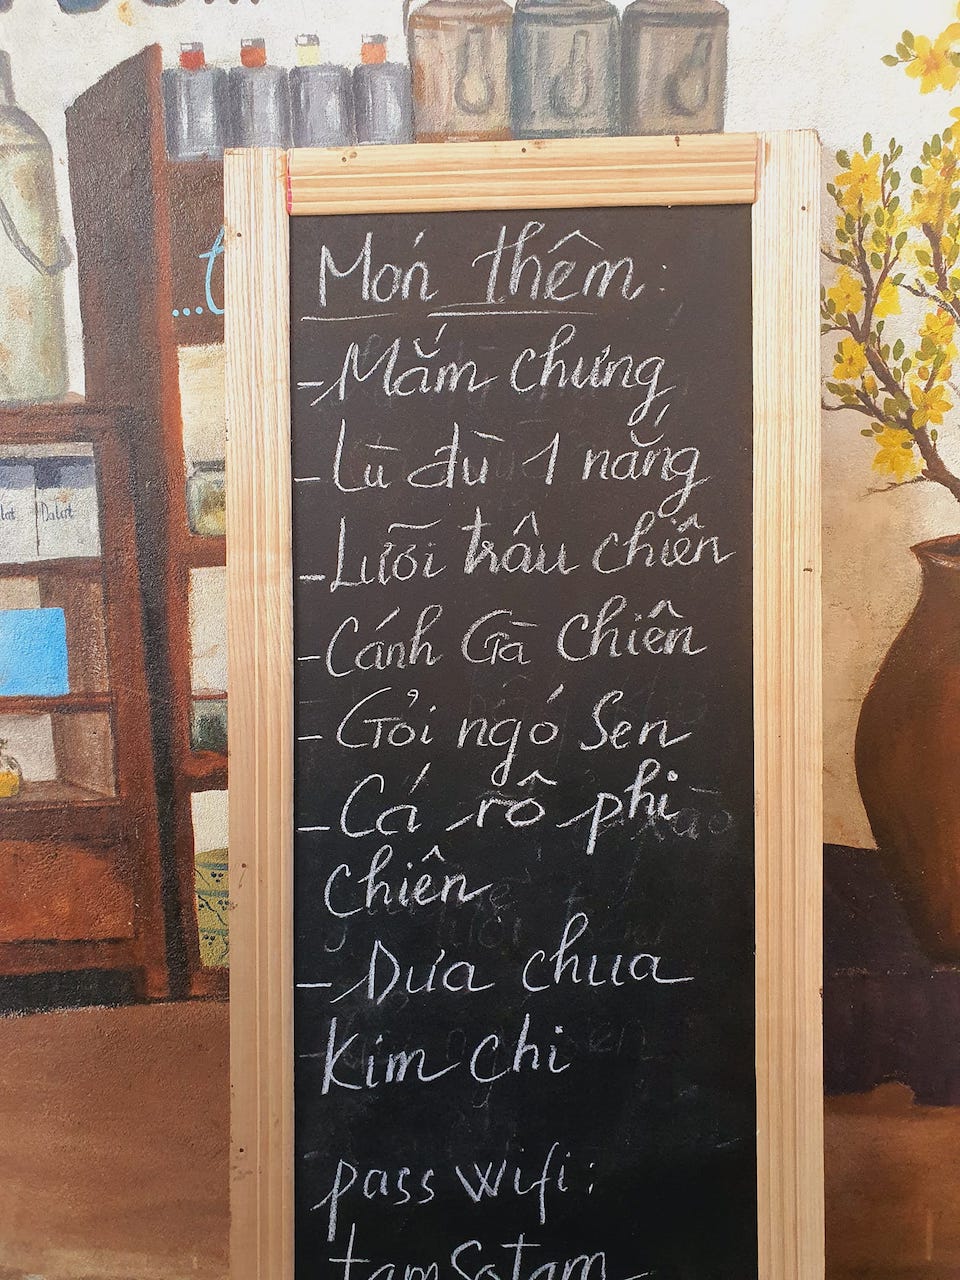 Món thêm:
- Mắm chưng
- Lù đù 1 nắng
- Lưỡi trâu chiên
- Cánh Gà chiên
- Gỏi ngó Sen
- Cá rô phi
chiên
- Dưa chua
Kim chi
pass wifi:
Dalat